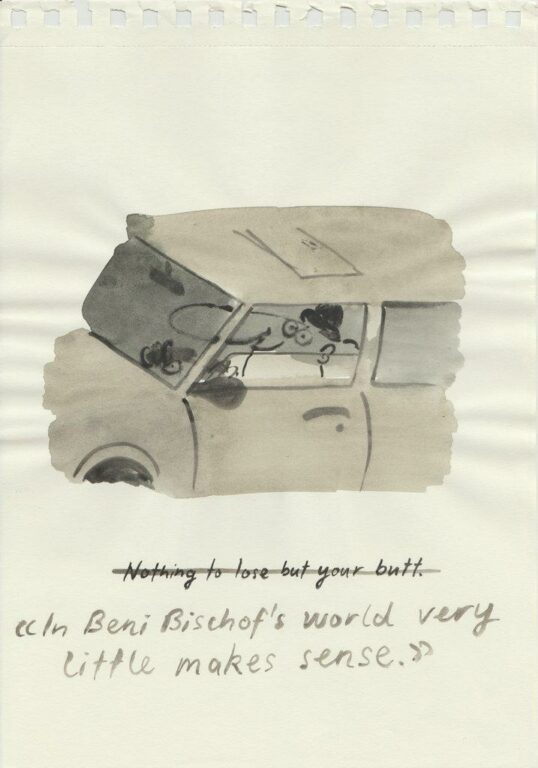 Nothing to lose but your butt.
«In Beni Bischof's world very
little makes sense.»